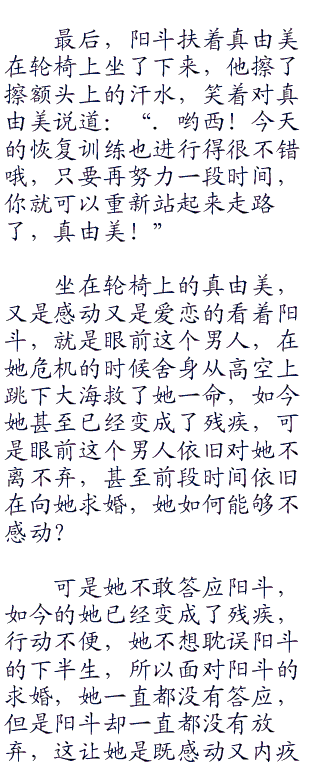 最后，阳斗扶着真由美
在轮椅上坐了下来，他擦了
擦额头上的汗水，笑着对真
由美说道：“．哟西！今天
的恢复训练也进行得很不错
哦，只要再努力一段时间，
你就可以重新站起来走路
了，真由美！”
坐在轮椅上的真由美，
又是感动又是爱恋的看着阳
斗，就是眼前这个男人，在
她危机的时候舍身从高空上
跳下大海救了她一命，如今
她甚至已经变成了残疾，可
是眼前这个男人依旧对她不
离不弃，甚至前段时间依旧
在向她求婚，她如何能够不
感动？
可是她不敢答应阳斗，
如今的她已经变成了残疾，
行动不便，她不想耽误阳斗
的下半生，所以面对阳斗的
求婚，她一直都没有答应，
但是阳斗却一直都没有放
弃，这让她是既感动又内疚